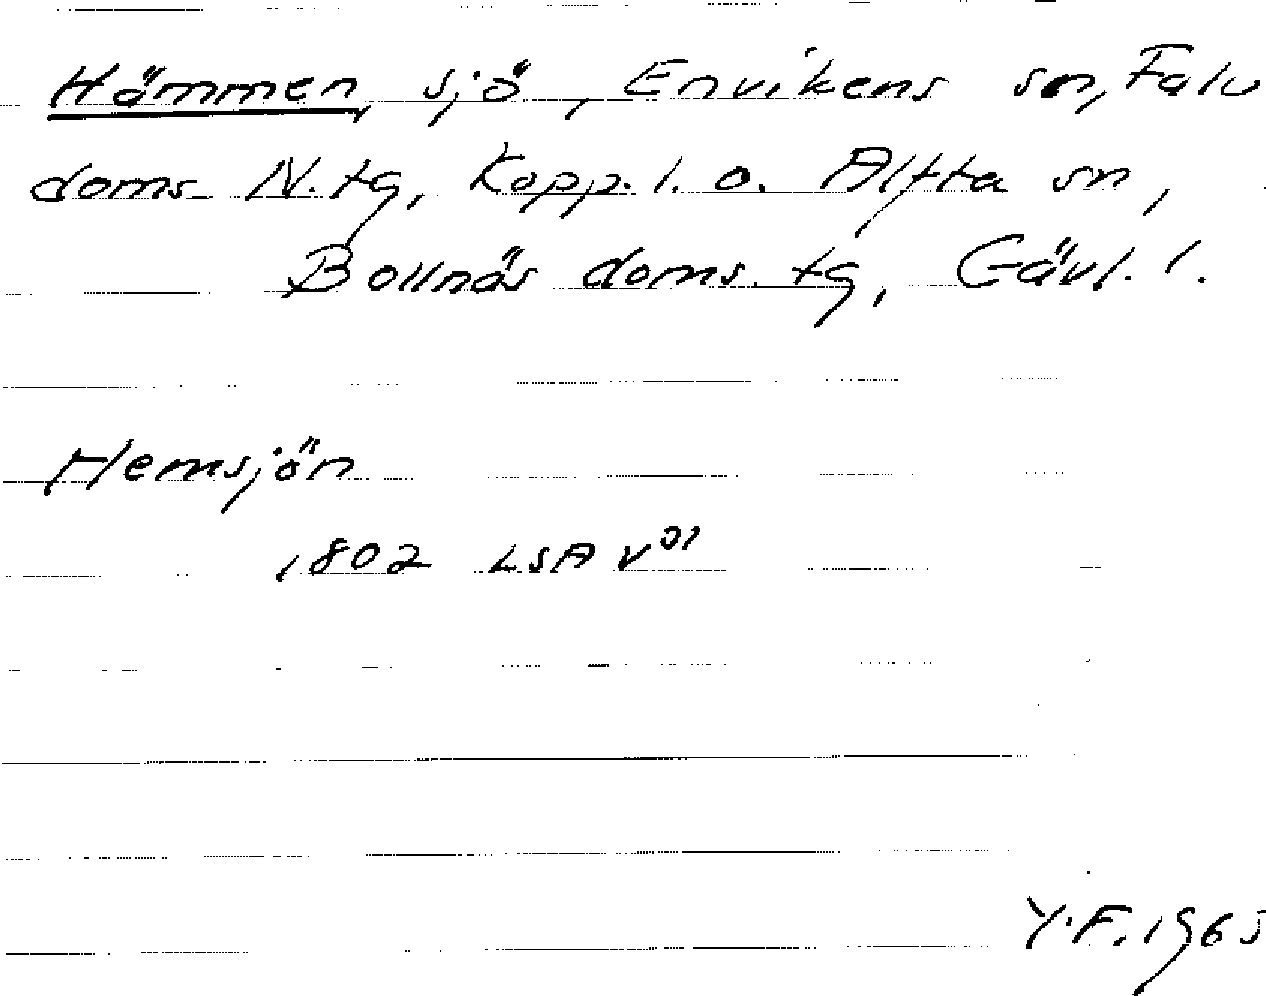 Hämmen, sjö, Envikens sn, Falu
doms. N. tg, Kopp. l. o. Alfta sn,
Bollnäs doms. tg, Gävl. l.
Hemsjön
1802 LSA V31
Y.F. 1965